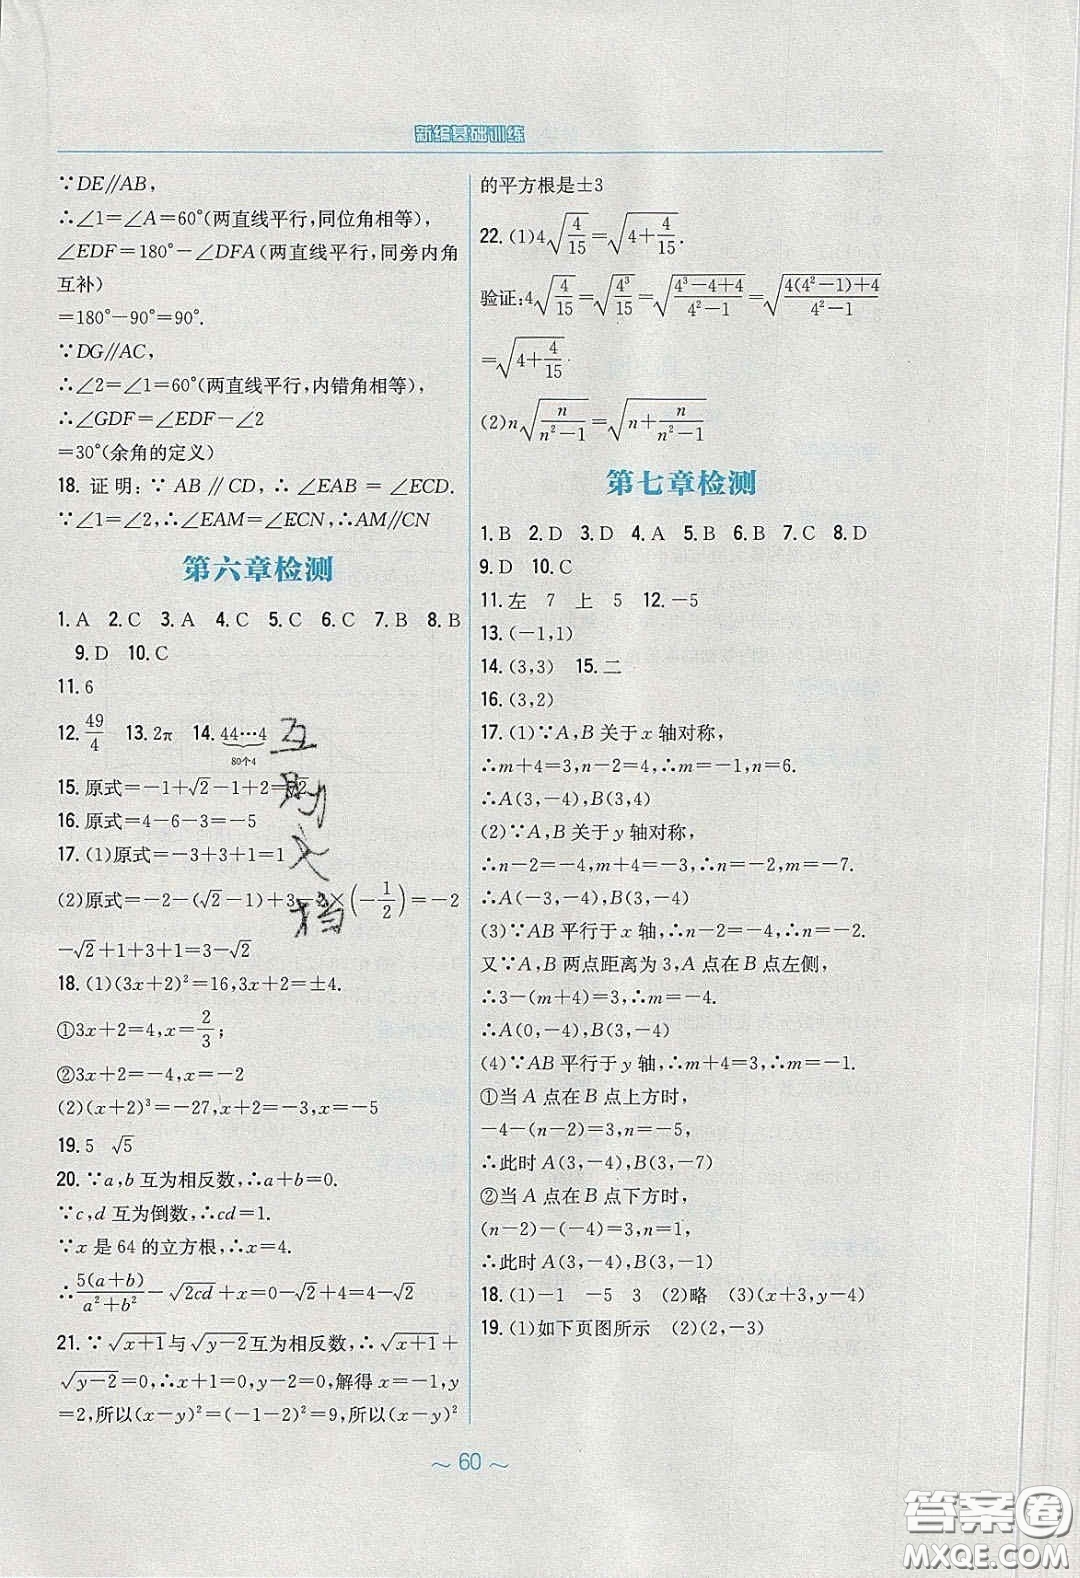 新编基础训练
∵DE∥AB,
∴∠1=∠A=60°(两直线平行,同位角相等),
∠EDF=180°-∠DFA(两直线平行,同旁内角
互补)
=180°-90°=90°.
∵DG∥AC,
∴∠2=∠1=60°(两直线平行,内错角相等),
∴∠GDF=∠EDF-∠2
=30°(余角的定义)
18. 证明:∵AB∥CD,∴∠EAB=∠ECD.
∵∠1=∠2,∴∠EAM=∠ECN,∴AM∥CN
第六章检测
1. A 2. C 3. A 4. C 5. C 6. C 7. B 8. B
9. D 10. C
11. 6
12. 49/4 13. 2π 14. 44⋯4
80个4
15. 原式=-1+√2-1+2=√2
16. 原式=4-6-3=-5
17. (1)原式=-3+3+1=1
(2)原式=-2-(√2-1)+3-2×(-1/2)=-2
-√2+1+3+1=3-√2
18. (1)(3x+2)²=16,3x+2=±4.
①3x+2=4,x=2/3;
②3x+2=-4,x=-2
(2)(x+2)³=-27,x+2=-3,x=-5
19. 5 √5
20. ∵a,b互为相反数,∴a+b=0.
∵c,d互为倒数,∴cd=1.
∵x是64的立方根,∴x=4.
∴5(a+b)/(a²+b²)-√(2cd)+x=0-√2+4=4-√2
21. ∵√(x+1)与√(y-2)互为相反数,∴√(x+1)+
√(y-2)=0,∴x+1=0,y-2=0,解得x=-1,y
=2,所以(x-y)²=(-1-2)²=9,所以(x-y)²
的平方根是±3
22. (1)4√(4/15)=√(4+4/15).
验证:4√(4/15)=√(4³/15)=√((4³-4+4)/(4²-1))=√((4(4²-1)+4)/(4²-1))
=√(4+4/15).
(2)n√(n/(n²-1))=√(n+n/(n²-1))
第七章检测
1. B 2. D 3. D 4. A 5. B 6. B 7. C 8. D
9. D 10. C
11. 左 7 上 5 12. -5
13. (-1,1)
14. (3,3) 15. 二
16. (3,2)
17. (1)∵A,B关于x轴对称,
∴m+4=3,n-2=4,∴m=-1,n=6.
∴A(3,-4),B(3,4)
(2)∵A,B关于y轴对称,
∴n-2=-4,m+4=-3,∴n=-2,m=-7.
∴A(-3,-4),B(3,-4)
(3)∵AB平行于x轴,∴n-2=-4,∴n=-2.
又∵A,B两点距离为3,A点在B点左侧,
∴3-(m+4)=3,∴m=-4.
∴A(0,-4),B(3,-4)
(4)∵AB平行于y轴,∴m+4=3,∴m=-1.
①当A点在B点上方时,
-4-(n-2)=3,n=-5,
∴此时A(3,-4),B(3,-7)
②当A点在B点下方时,
(n-2)-(-4)=3,n=1,
∴此时A(3,-4),B(3,-1)
18. (1)-1 -5 3 (2)略 (3)(x+3,y-4)
19. (1)如下页图所示 (2)(2,-3)
~ 60 ~
答案圈
MXQE.COM